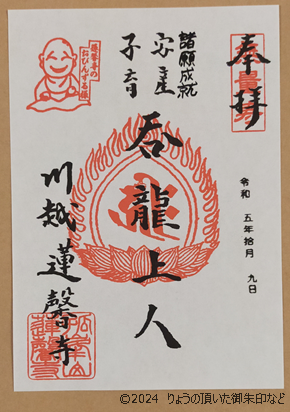 奉拝
令和 五年拾月 九日
諸願成就
安産
子育
呑龍上人
川越 蓮馨寺
蓮馨寺の
おびんずる様
©2024 りょうの頂いた御朱印など